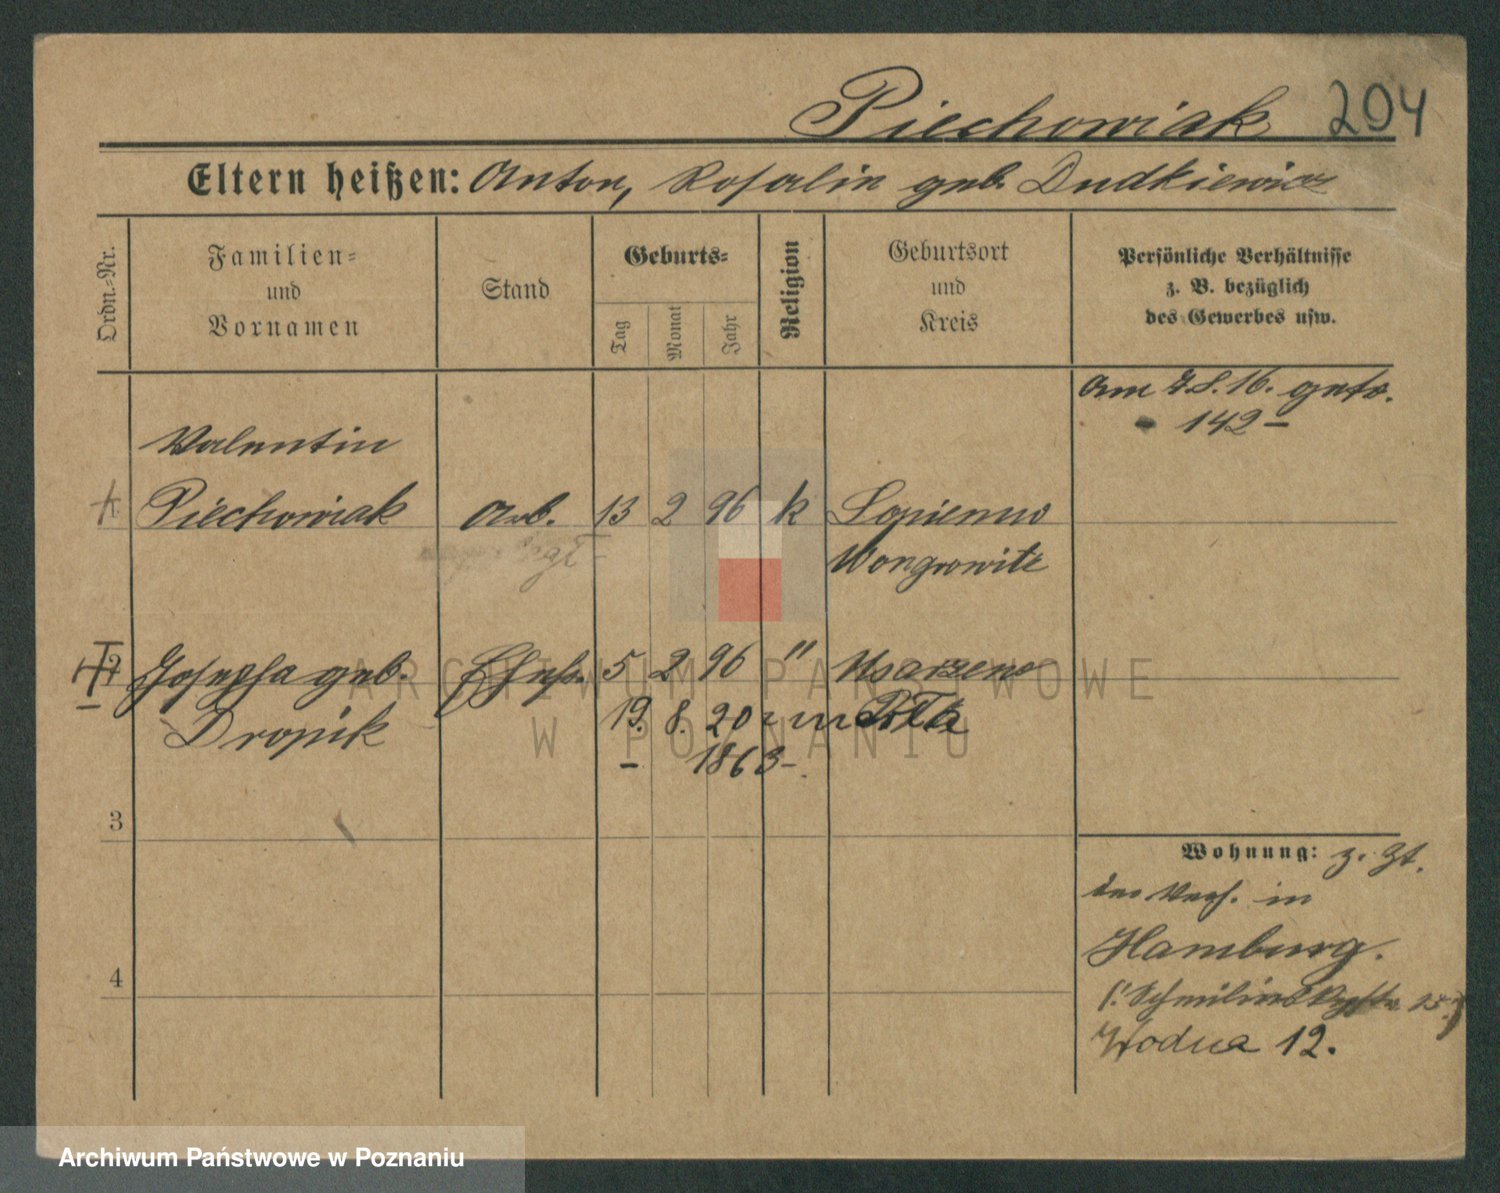 Piechowiak 204
Eltern heißen: Anton, Rosalin geb. Dudkiewicz
Ordn.-Nr.
Familien-
und
Vornamen
Stand
Geburts-
Tag
Monat
Jahr
Religion
Geburtsort
und
Kreis
Persönliche Verhältnisse
z. B. bezüglich
des Gewerbes usw.
Am 7.8.16. getr.
142 –
Valentin
Piechowiak Arb. 13 2 96 k Lopienno
Wongrowitz
2 Josepha geb. Ehefr. 5 2 96 "
Dropik 19. 8. 20
1863 –
3
Wohnung: z. Zt.
in
Hamburg.
4
Wodna 12.
ARCHIWUM PAŃSTWOWE
W POZNANIU
Archiwum Państwowe w Poznaniu